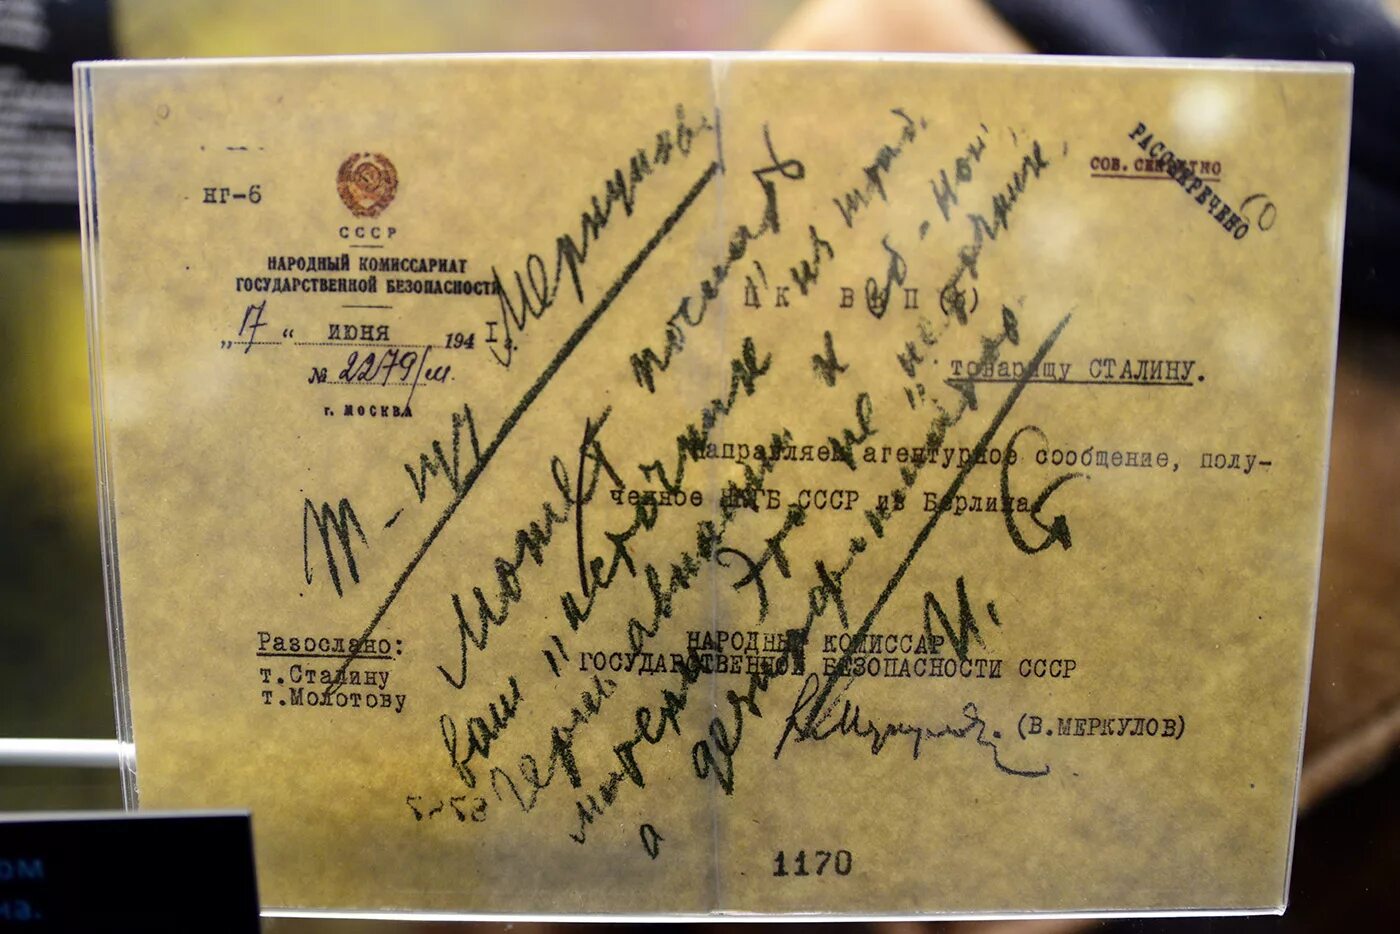 НГ-6
СССР
НАРОДНЫЙ КОМИССАРИАТ
ГОСУДАРСТВЕННОЙ БЕЗОПАСНОСТИ
„17“ ИЮНЯ 1941 г.
№ 2279/м.
г. МОСКВА
СОВ. СЕКРЕТНО
РАССЕКРЕЧЕНО
60
ЦК ВКП(б)
товарищу СТАЛИНУ.
Направляем агентурное сообщение, полу-
ченное НКГБ СССР из Берлина.
НАРОДНЫЙ КОМИССАР
ГОСУДАРСТВЕННОЙ БЕЗОПАСНОСТИ СССР
(В.МЕРКУЛОВ)
Разослано:
т.Сталину
т.Молотову
1170
Т-щу Меркулову
Может послать
ваш "источник" из штаб.
герм. авиации к еб-ной
матери. Это не "источник"
а дезинформатор.
И. Ст